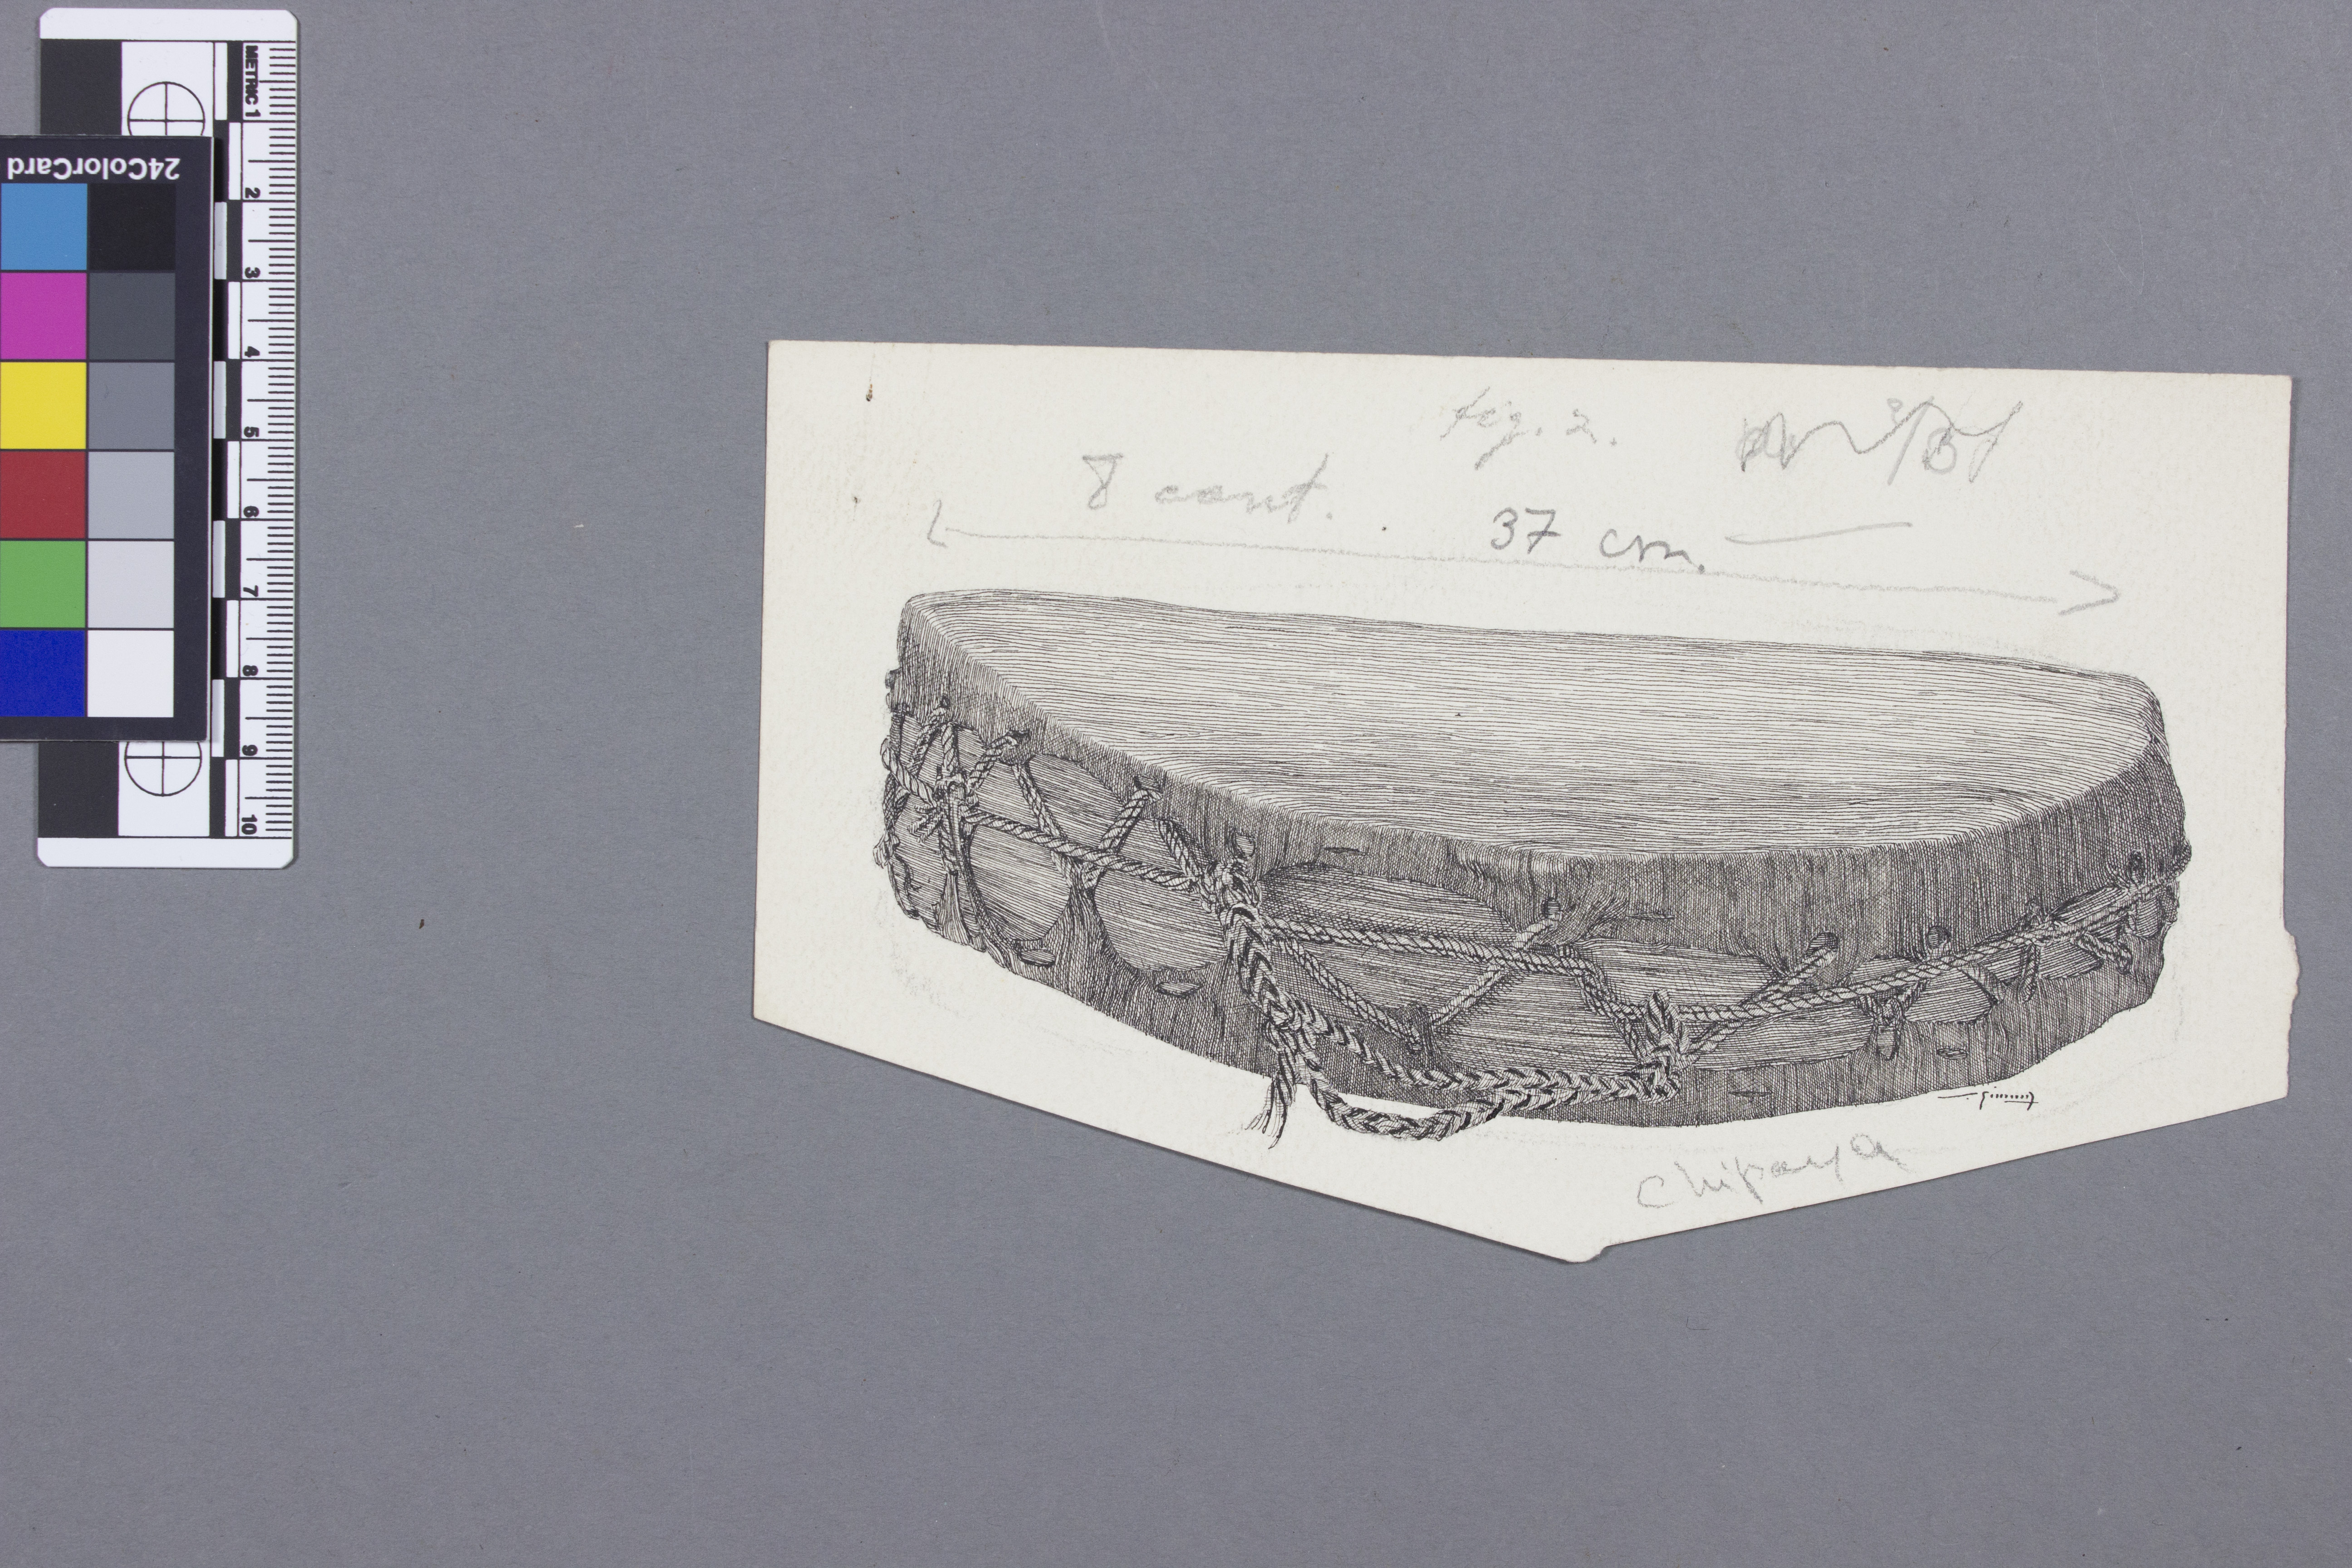 24ColorCard
METRIC 1
2
3
4
5
6
7
8
9
10
fig. 2.
8 cent.
37 cm.
Chipaya